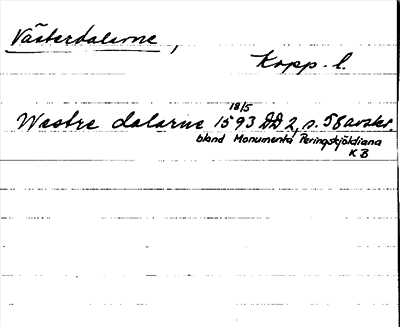 Västerdalarne,
Kopp. l.
18/5
Westre dalarne 1593 DD 2, s. 58 avskr.
bland Monumenta Peringskjöldiana
KB